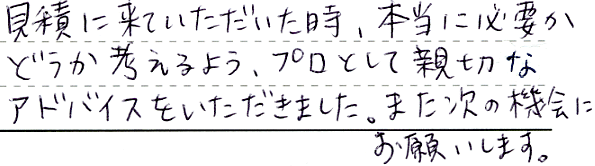 見積に来ていただいた時、本当に必要か
どうか考えるよう、プロとして親切な
アドバイスをいただきました。また次の機会に
お願いします。